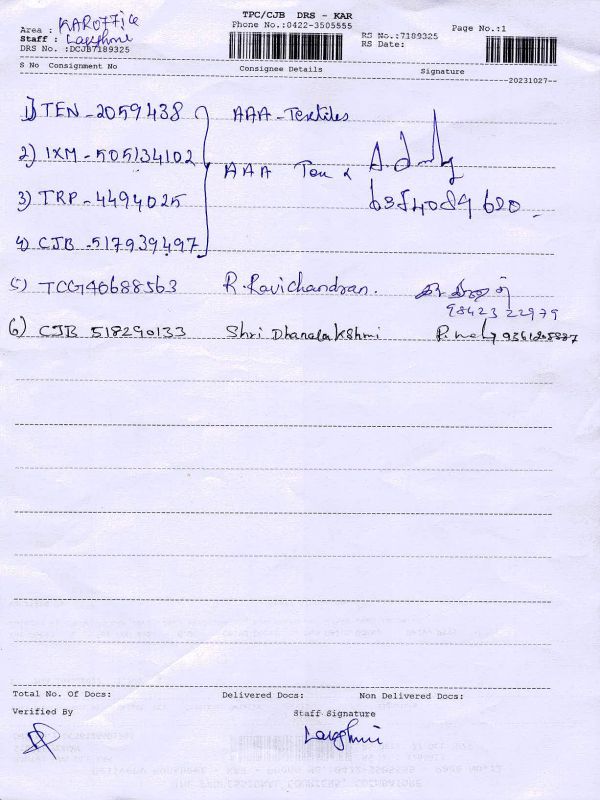 TPC/CJB DRS - KAR
Area : KAR OFFICE Phone No.:0422-3505555 Page No.:1
Staff : Laxshmi RS No.:7189325
DRS No. :DCJB7189325 RS Date:
S No Consignment No Consignee Details Signature
20231027--
1) TEN - 2059438 AAA - Textiles
2) IXM - 505134102 AAA Tex
3) TRP - 4494025
4) CJB - 517939497
5) TCG40688563 R. Ravichandran.
98423 22979
6) CJB 518290133 Shri Dhanalakshmi
Total No. Of Docs: Delivered Docs: Non Delivered Docs:
Verified By Staff Signature
Laxshmi